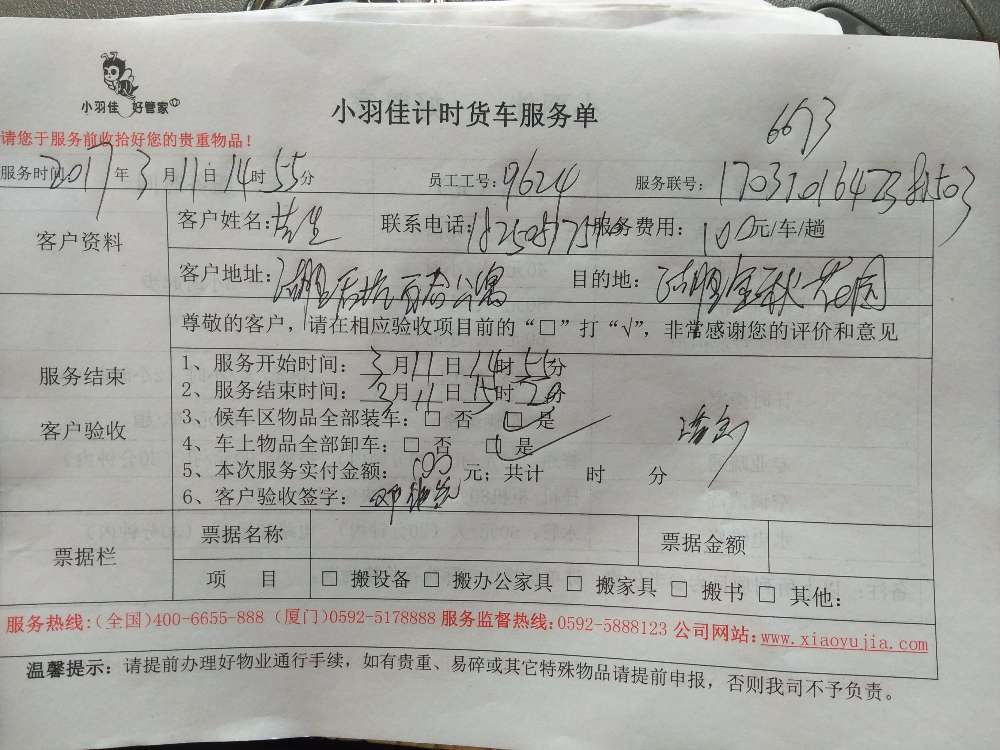 小羽佳 好管家
小羽佳计时货车服务单
6673
请您于服务前收拾好您的贵重物品！
服务时间 2017年3月11日14时55分 员工工号：9624 服务联号：
客户资料
客户姓名： 联系电话： 服务费用：100元/车/趟
客户地址： 目的地：
尊敬的客户，请在相应验收项目前的“□”打“√”，非常感谢您的评价和意见
服务结束
客户验收
1、服务开始时间：3月11日14时55分
2、服务结束时间：3月11日15时20分
3、候车区物品全部装车：□ 否 □ 是
4、车上物品全部卸车：□ 否 □ 是
5、本次服务实付金额：100元；共计 时 分
6、客户验收签字：
票据栏
票据名称 票据金额
项 目 □ 搬设备 □ 搬办公家具 □ 搬家具 □ 搬书 □ 其他：
服务热线：(全国)400-6655-888 (厦门)0592-5178888 服务监督热线：0592-5888123 公司网站：www.xiaoyujia.com
温馨提示：请提前办理好物业通行手续，如有贵重、易碎或其它特殊物品请提前申报，否则我司不予负责。